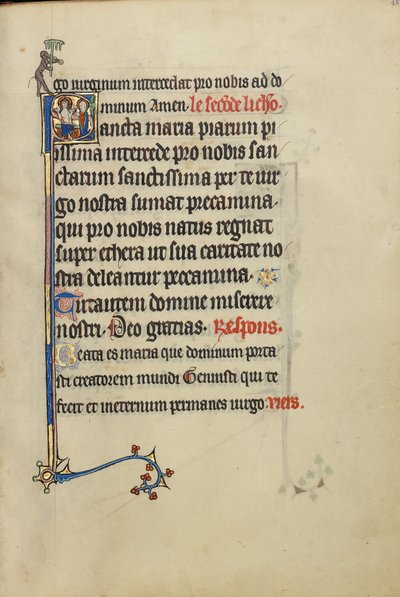 go uirginum intercedat pro nobis ad do
minum Amen. le secōde licho.
Sancta maria piarum pi
issima intercede pro nobis san
ctarum sanctissima per te uir
go nostra sumat precamina.
qui pro nobis natus regnat
super ethera ut sua caritate no
stra deleantur peccamina.
Tu autem domine miserere
nostri. Deo gratias. Respons.
Beata es maria que dominum porta
sti creatorem mundi Genuisti qui te
fecit et ineternum permanes uirgo. Vers.